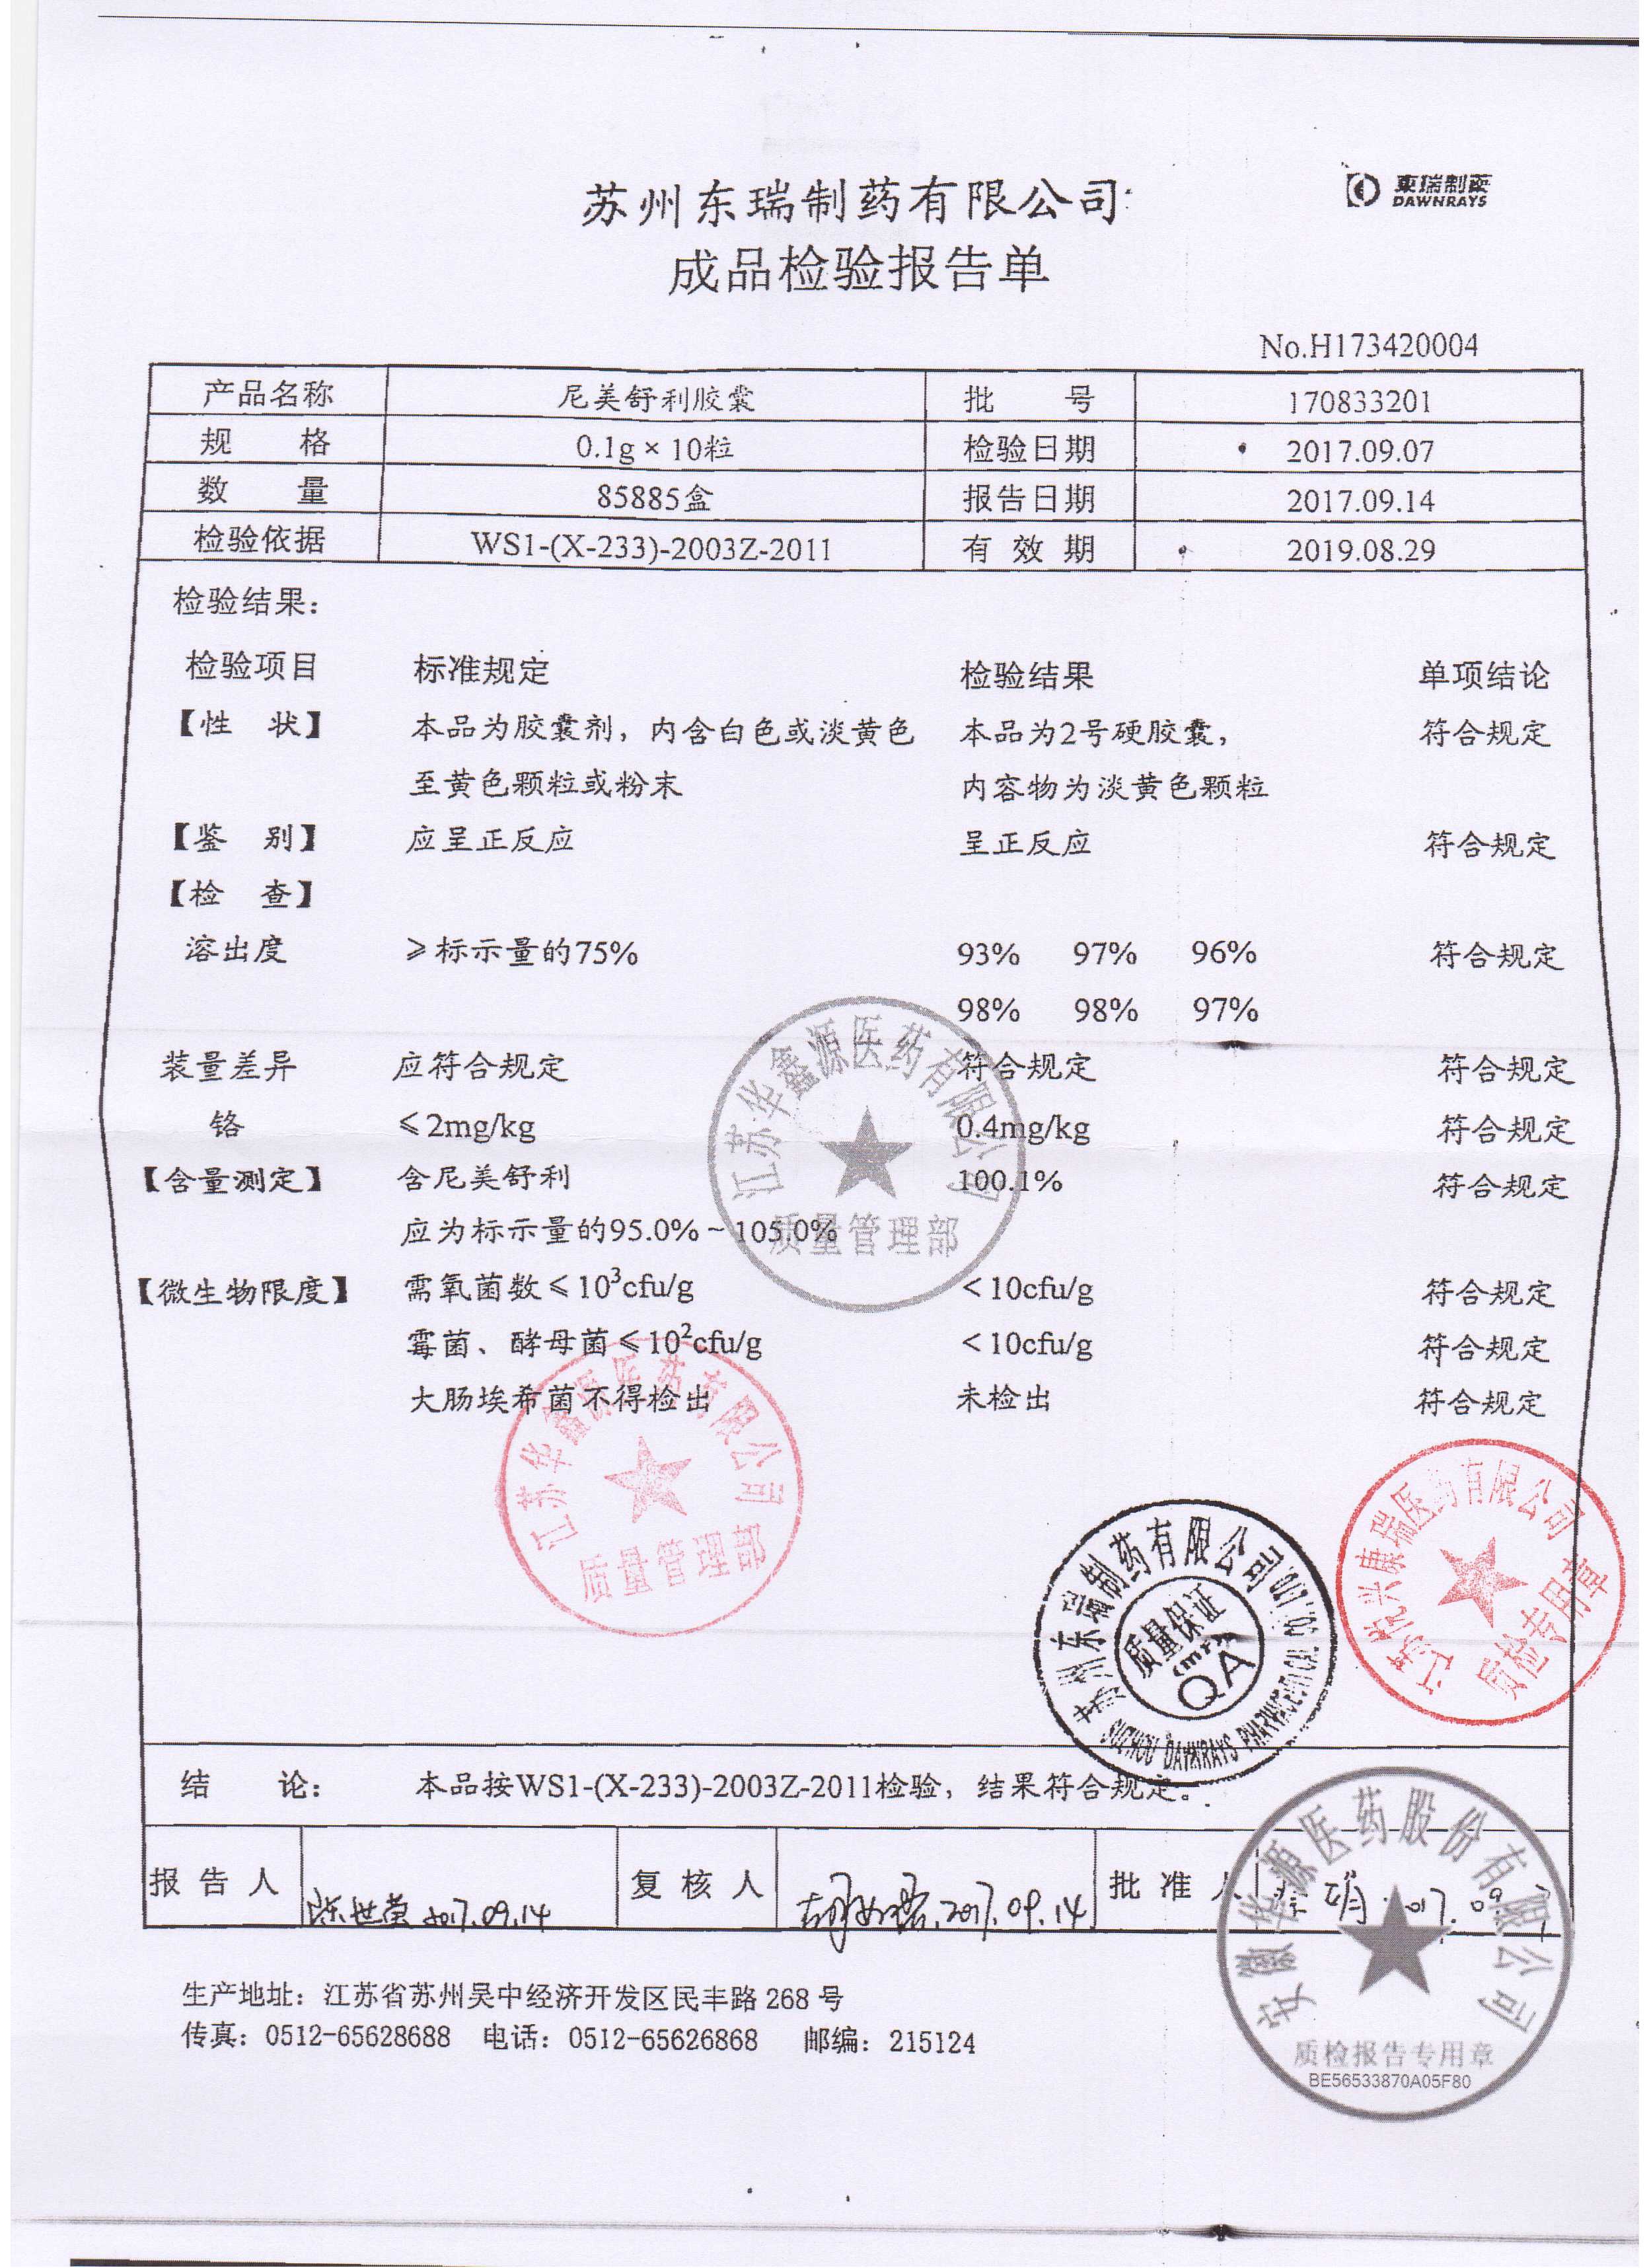 苏州东瑞制药有限公司
東瑞制薬
DAWNRAYS
成品检验报告单
No.H173420004
产品名称 尼美舒利胶囊 批 号 170833201
规 格 0.1g×10粒 检验日期 2017.09.07
数 量 85885盒 报告日期 2017.09.14
检验依据 WS1-(X-233)-2003Z-2011 有 效 期 2019.08.29
检验结果:
检验项目 标准规定 检验结果 单项结论
【性 状】 本品为胶囊剂，内含白色或淡黄色 本品为2号硬胶囊， 符合规定
至黄色颗粒或粉末 内容物为淡黄色颗粒
【鉴 别】 应呈正反应 呈正反应 符合规定
【检 查】
溶出度 ≥标示量的75% 93% 97% 96% 符合规定
98% 98% 97%
装量差异 应符合规定 符合规定 符合规定
铬 ≤2mg/kg 0.4mg/kg 符合规定
【含量测定】 含尼美舒利 100.1% 符合规定
应为标示量的95.0%~105.0%
【微生物限度】 需氧菌数≤10³cfu/g <10cfu/g 符合规定
霉菌、酵母菌≤10²cfu/g <10cfu/g 符合规定
大肠埃希菌不得检出 未检出 符合规定
江苏华鑫源医药有限公司
质量管理部
江苏华鑫源医药有限公司
质量管理部
苏州东瑞制药有限公司
SUZHOU DAWNRAYS PHARMACEUTICAL CO.,LTD
质量保证
QA
康瑞医药有限公司
质检专用章
结 论: 本品按WS1-(X-233)-2003Z-2011检验，结果符合规定。
报 告 人 陈世莹 2017.09.14 复 核 人 2017.09.14 批 准 人
安徽华源医药股份有限公司
质检报告专用章
BE56533870A05F80
生产地址：江苏省苏州吴中经济开发区民丰路 268 号
传真：0512-65628688 电话：0512-65626868 邮编：215124